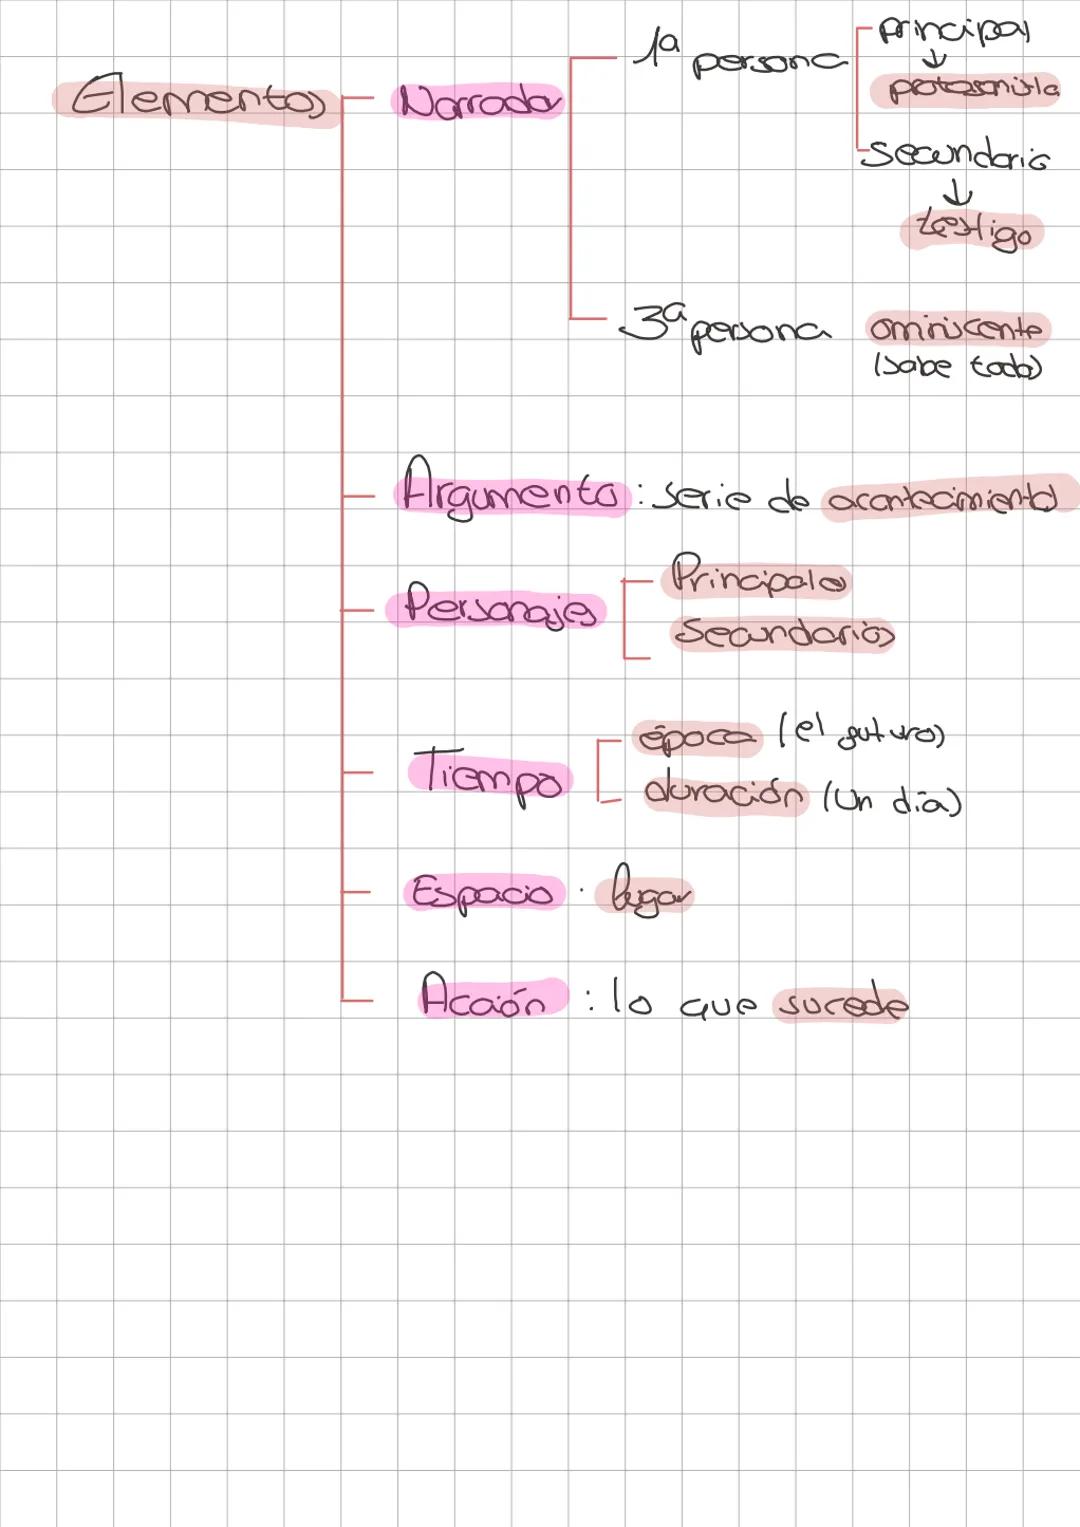 Elementos
Narrador
1ª persona
principal
↓
protagonista
secundario
↓
testigo
3ª persona
ominiscente
(sabe todo)
Argumento: serie de acontecimientos
Personajes
Principales
Secundarios
Tiempo
época (el futuro)
duración (Un día)
Espacio: lugar
Acción: lo que sucede